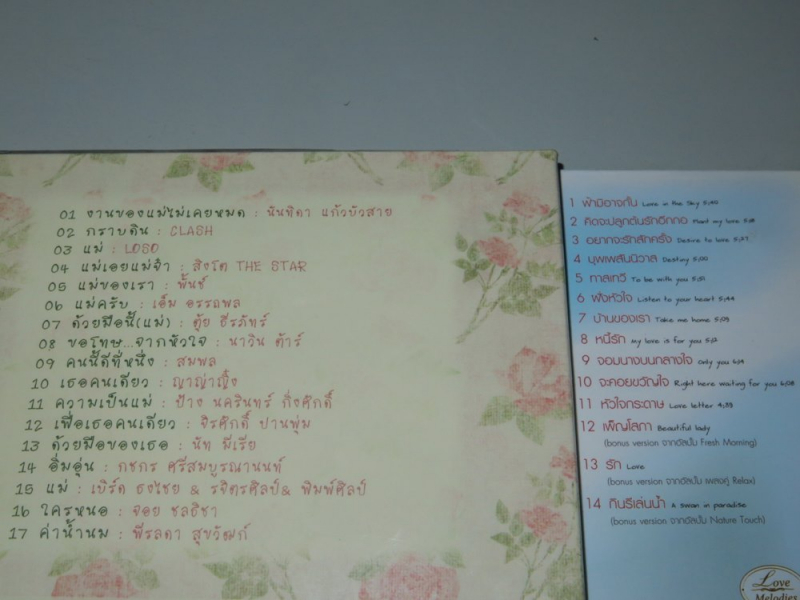 01 งานของแม่ไม่เคยหมด : นันทิดา แก้วบัวสาย
02 กราบดิน : CLASH
03 แม่ : LOSO
04 แม่เอยแม่จ๋า : สิงโต THE STAR
05 แม่ของเรา : พั้นช์
06 แม่ครับ : เอ็ม อรรถพล
07 ด้วยมือนี้(แม่) : ตุ้ย ธีรภัทร์
08 ขอโทษ...จากหัวใจ : นาวิน ต้าร์
09 คนนี้ดีที่หนึ่ง : สมพล
10 เธอคนเดียว : ญาญ่าญิ๋ง
11 ความเป็นแม่ : ป้าง นครินทร์ กิ่งศักดิ์
12 เพื่อเธอคนเดียว : จิรศักดิ์ ปานพุ่ม
13 ด้วยมือของเธอ : นัท มีเรีย
14 อิ่มอุ่น : กชกร ศรีสมบูรณานนท์
15 แม่ : เบิร์ด ธงไชย & รจิตรศิลป์& พิมพ์ศิลป์
16 ใครหนอ : จอย ชลธิชา
17 ค่าน้ำนม : พีรลดา สุขวัฒก์
1 ฟ้ามิอาจกั้น Love in the Sky
2 คิดจะปลูกต้นรักอีกกอ Plant my love
3 อยากจะรักสักครั้ง Desire to love
4 บุพเพสันนิวาส Destiny
5 ทาสเทวี To be with you
6 ฟังหัวใจ Listen to your heart 5:44
7 บ้านของเรา Take me home
8 หนี้รัก my love is for you
9 จอมนางบนกลางใจ Only you
10 จะคอยขวัญใจ Right here waiting for you
11 หัวใจกระดาษ Love letter 4:33
12 เพ็ญโสภา Beautiful lady
(bonus version จากอัลบั้ม Fresh Morning)
13 รัก Love
(bonus version จากอัลบั้ม เพลงคู่ Relax)
14 กินรีเล่นน้ำ A swan in paradise
(bonus version จากอัลบั้ม Nature Touch)
Love
Melodies